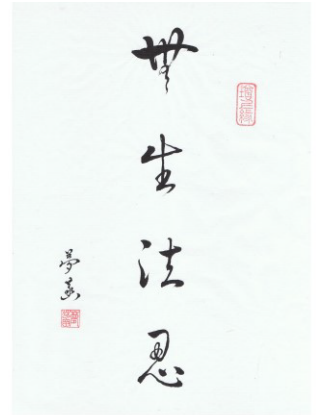 無生法忍
夢真